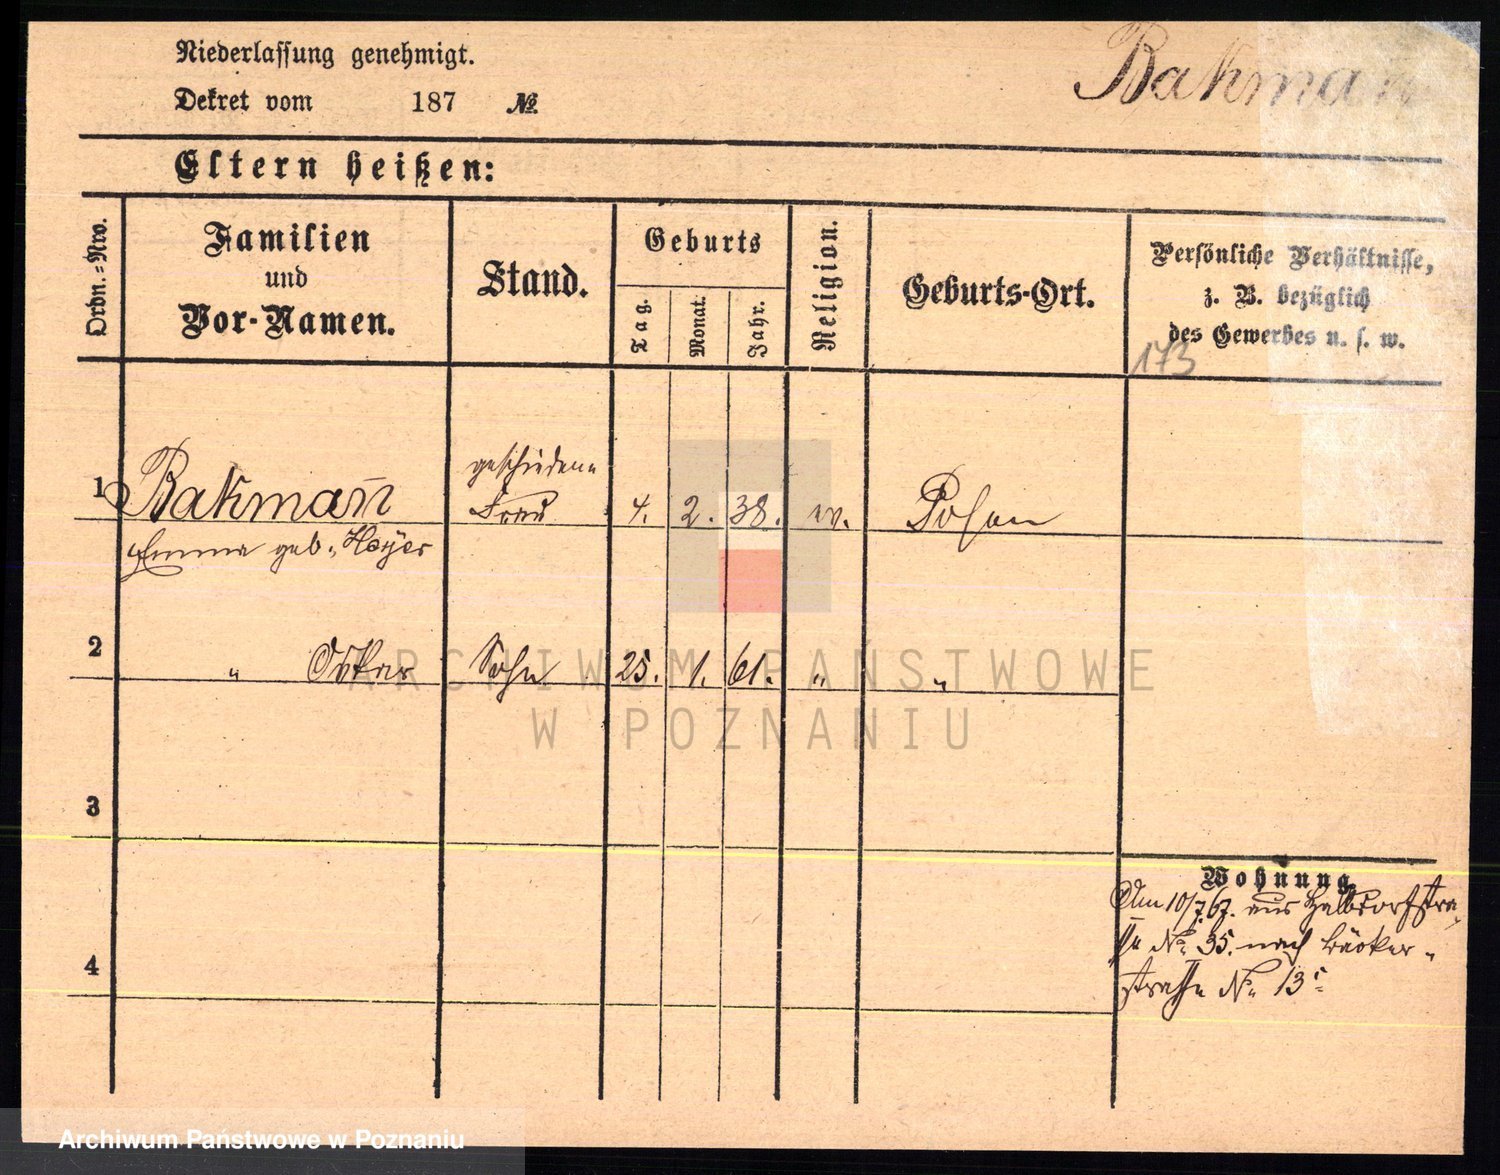 Niederlassung genehmigt.
Bakman
Dekret vom 187 №
Eltern heißen:
Ordn.=Nro.
Familien
und
Vor-Namen.
Stand.
Geburts
Tag.
Monat.
Jahr.
Religion.
Geburts-Ort.
Persönliche Verhältnisse,
z. B. bezüglich
des Gewerbes u. s. w.
173
1 Bakman̄ geschiedene Frau 4. 2. 38. ev. Posen
Emma geb. Hoyer
2 " Oskar Sohn 25. 1. 61. " "
3
4
Wohnung.
Am 10/7.67. aus Halbdorfstra
ße No 35. nach Bäcker-
straße No 13c
ARCHIWUM PAŃSTWOWE
W POZNANIU
Archiwum Państwowe w Poznaniu